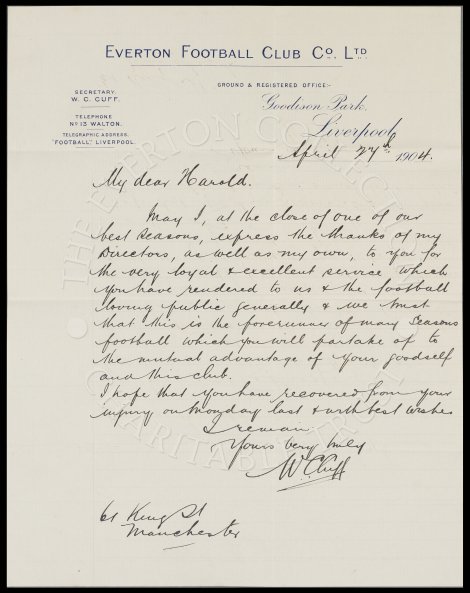 EVERTON FOOTBALL CLUB CO. LTD
GROUND & REGISTERED OFFICE:-
SECRETARY.
W. C. CUFF.
Goodison Park,
TELEPHONE
No 13 WALTON.
Liverpool,
TELEGRAPHIC ADDRESS.
"FOOTBALL" LIVERPOOL.
April 27th 1904.
My dear Harold.
May I, at the close of one of our
best seasons, express the thanks of my
Directors, as well as my own, to you for
the very loyal & excellent service which
you have rendered to us & the football
loving public generally & we trust
that this is the forerunner of many seasons
football which you will partake of to
the mutual advantage of your goodself
and this club.
I hope that you have recovered from your
injury on Monday last & with best wishes
I remain
Yours very truly
W. C. Cuff
61 King St
Manchester
© THE EVERTON COLLECTION
CHARITABLE TRUST